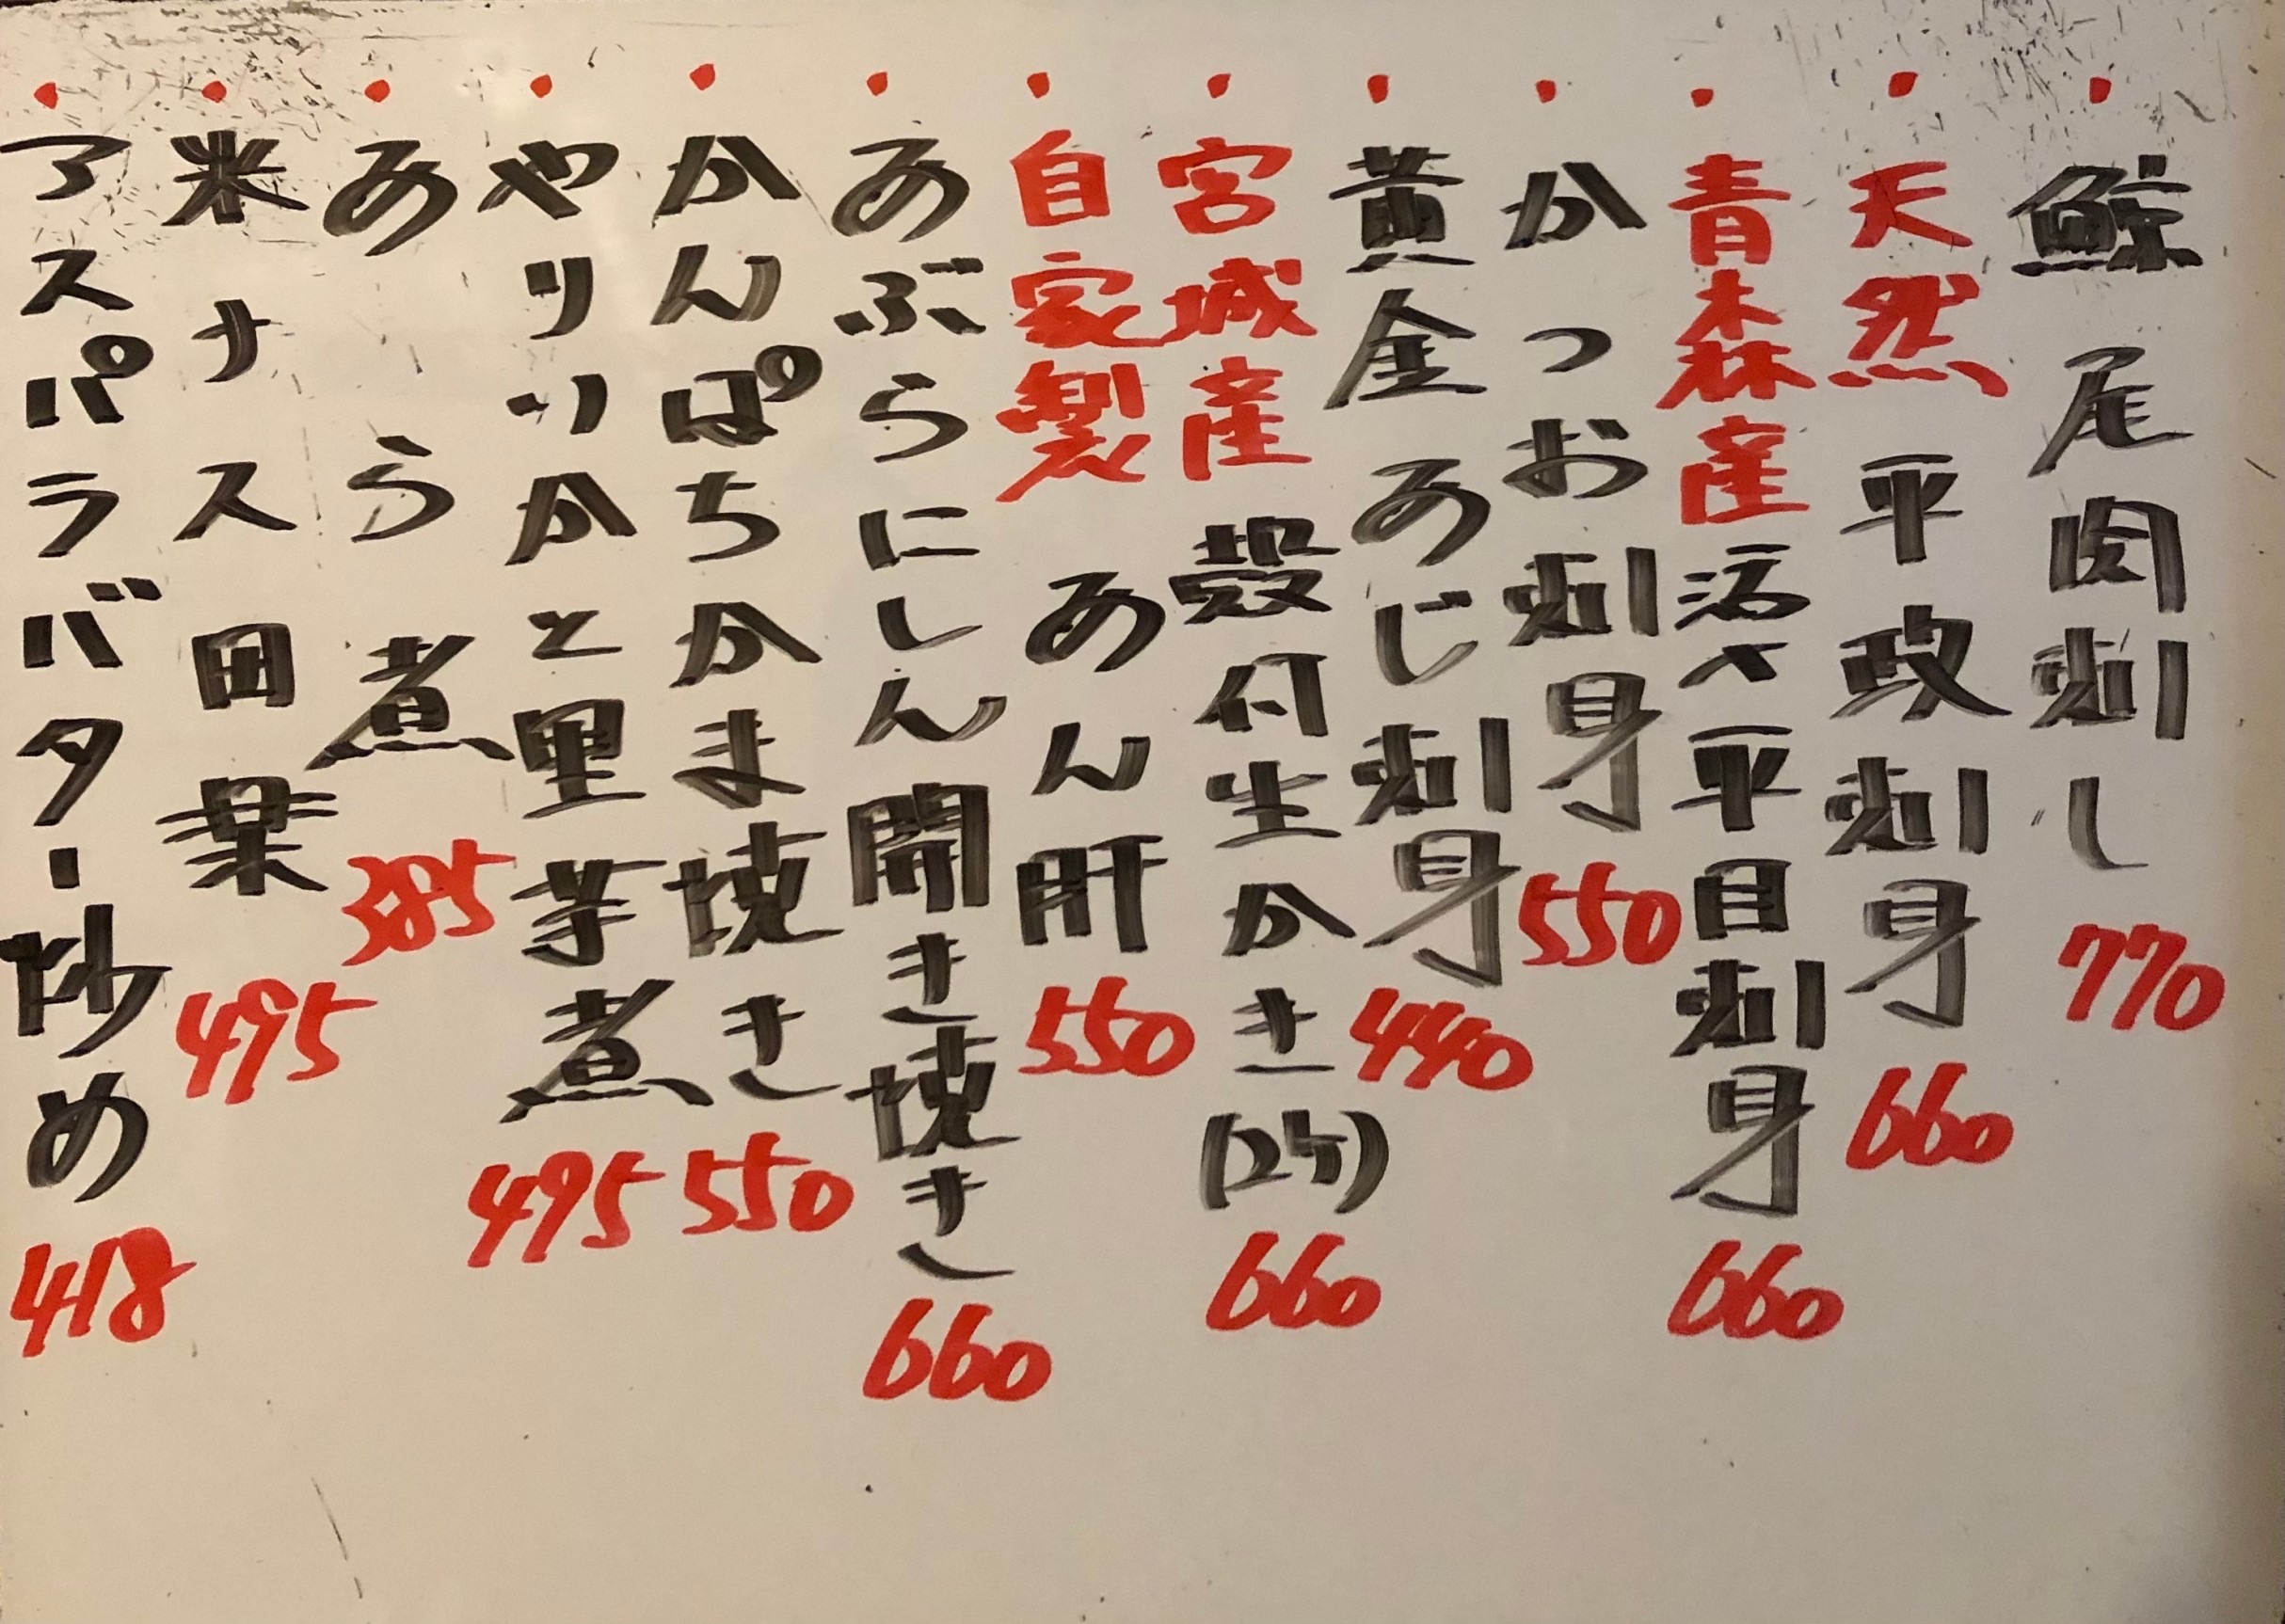 ・鯨尾肉刺し 770
・天然平政刺身 660
・青森産活〆平目刺身 660
・かつお刺身 550
・黄金あじ刺身 440
・宮城産殻付生かき(2ケ) 660
・自家製あん肝 550
・あぶらにしん開き焼き 660
・かんぱちかま焼き 550
・やりいかと里芋煮 495
・あら煮 385
・米ナス田楽 495
・アスパラバター炒め 418